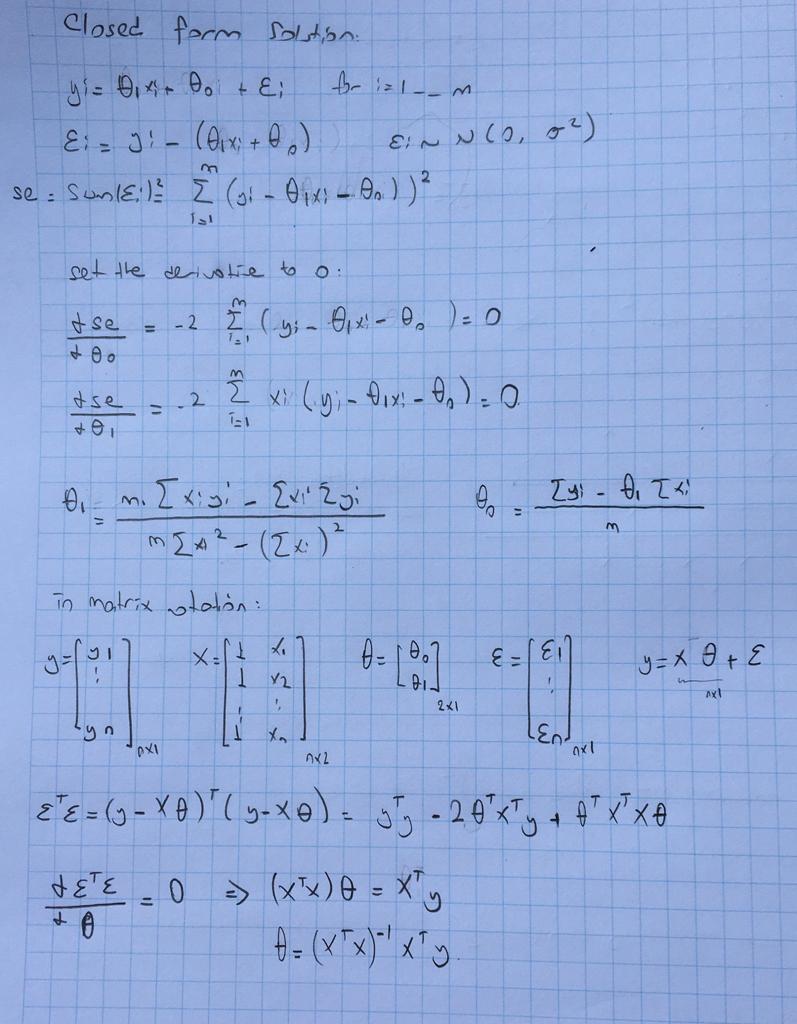 Closed form solution:
yi = θ1xi + θ0 + εi for i=1 -- m
εi = yi - (θ1xi + θ0) εi ~ N(0, σ²)
se = Sum(εi)² = Σ_{i=1}^{m} (yi - θ1xi - θ0))²
set the derivative to 0:
d se / d θ0 = -2 Σ_{i=1}^{m} (yi - θ1xi - θ0) = 0
d se / d θ1 = -2 Σ_{i=1}^{m} xi (yi - θ1xi - θ0) = 0
θ1 = (m. Σxiyi - Σxi Σyi) / (m Σxi² - (Σxi)²) θ0 = (Σyi - θ1 Σxi) / m
in matrix notation:
y = [y1 ⋮ yn] nx1 X = [1 x1 1 x2 ⋮ ⋮ 1 xn] nx2 θ = [θ0 θ1] 2x1 ε = [ε1 ⋮ εn] nx1 y = Xθ + ε nx1
εᵀε = (y - Xθ)ᵀ(y - Xθ) = yᵀy - 2θᵀXᵀy + θᵀXᵀXθ
d εᵀε / d θ = 0 ⇒ (XᵀX)θ = Xᵀy
θ = (XᵀX)⁻¹ Xᵀy.